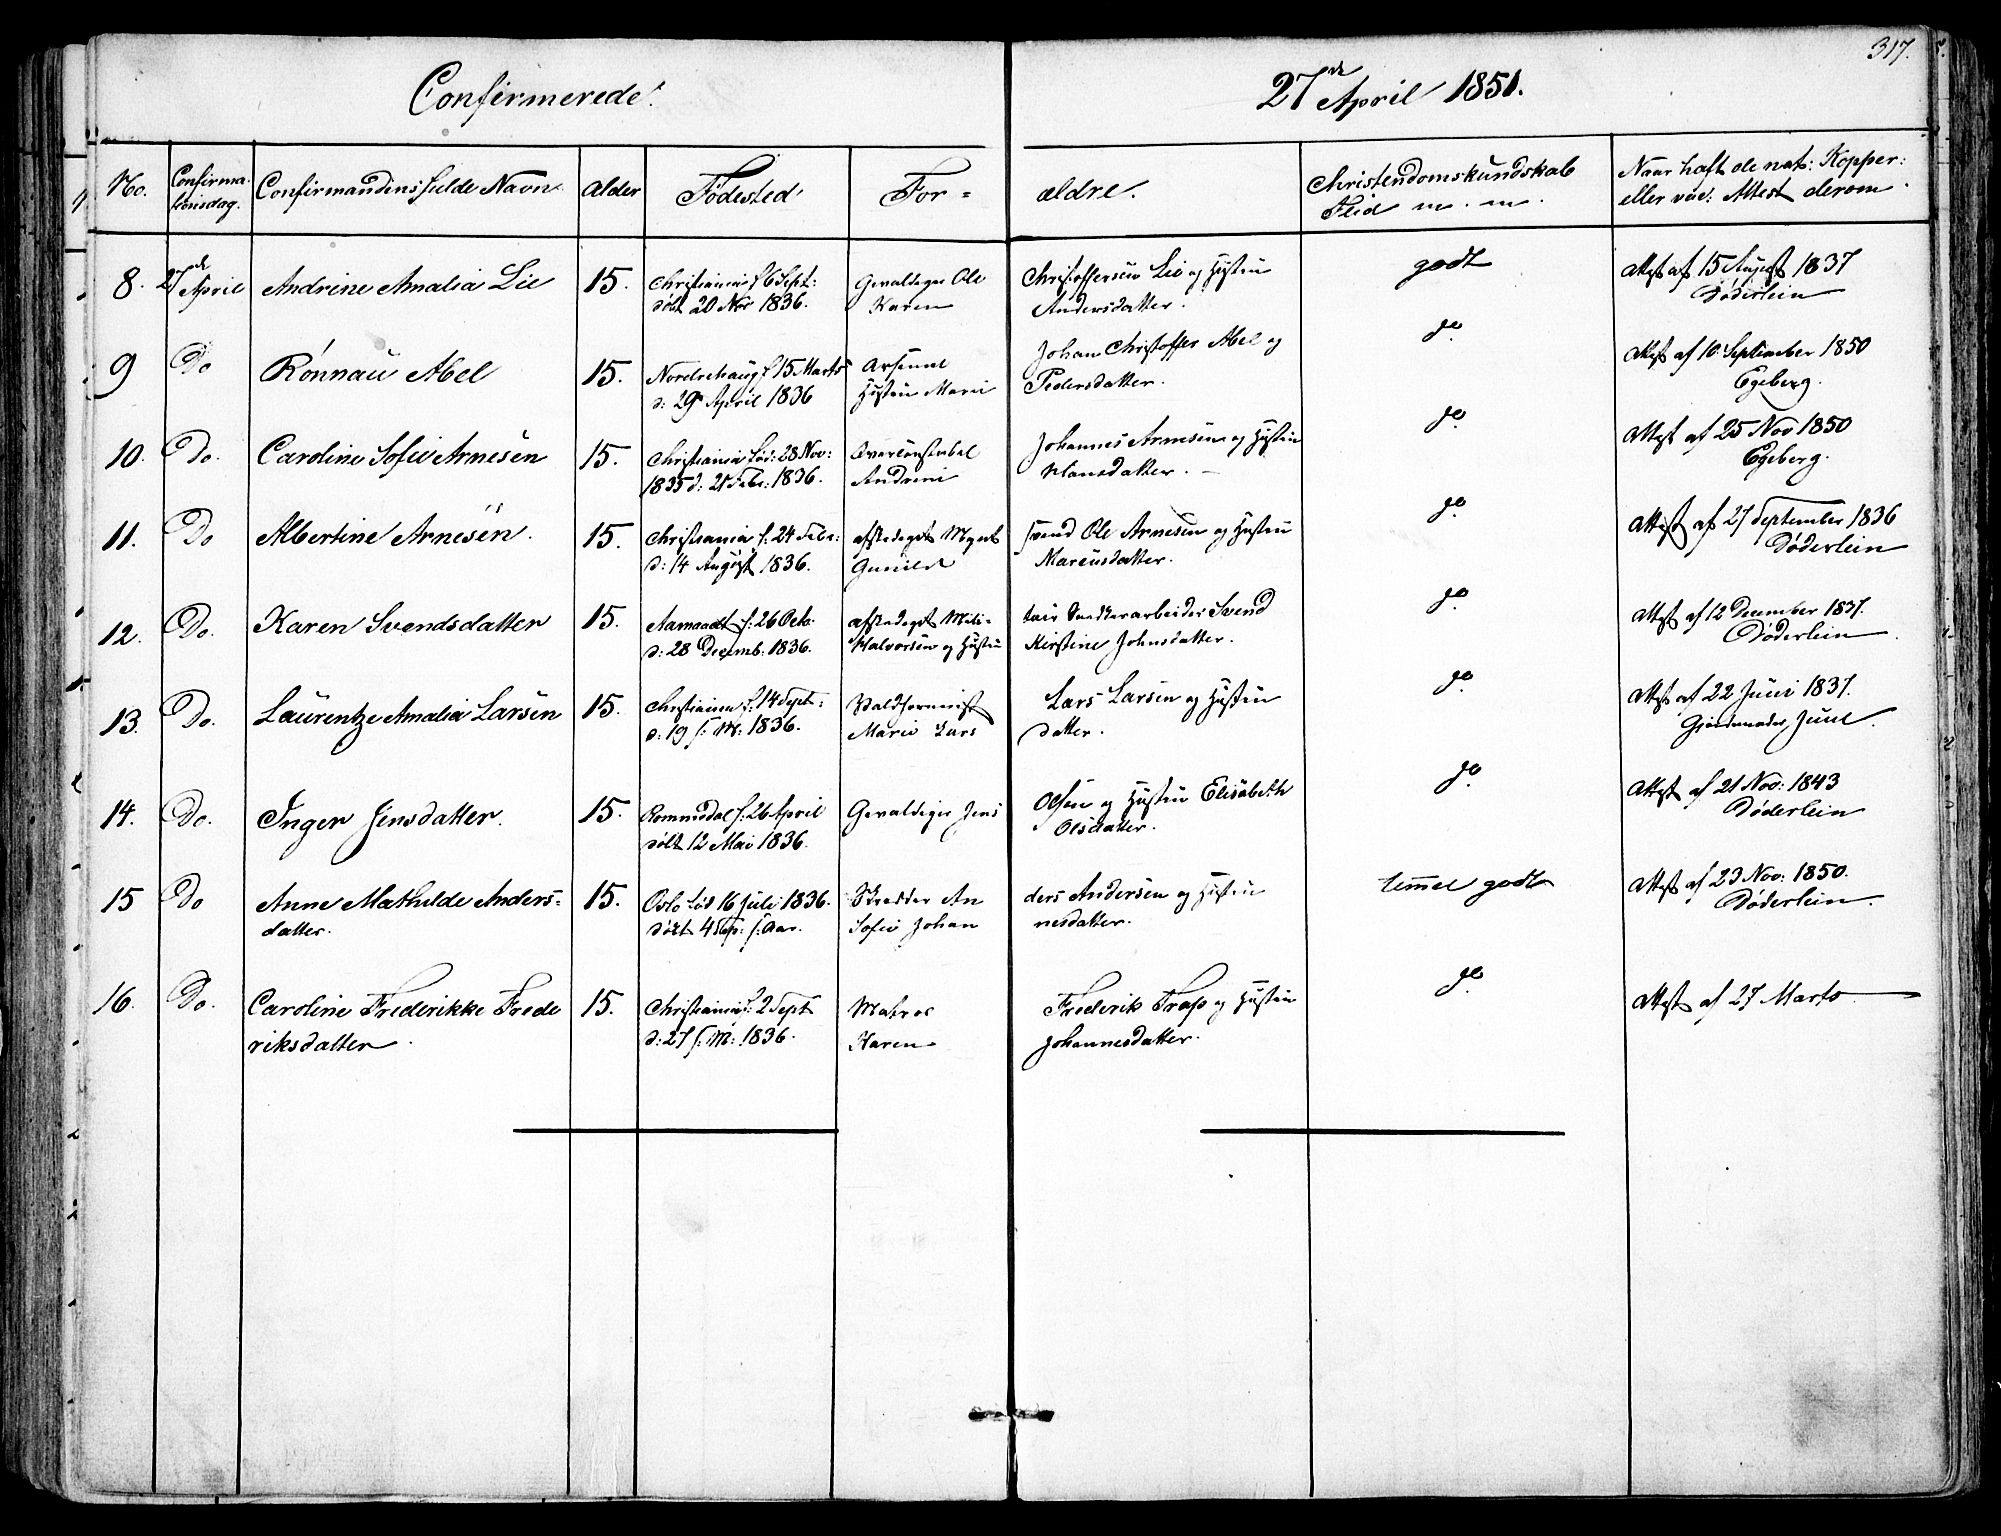 317.
Confirmerede.
27de April 1851.
No. Confirmationsdag. Confirmandens fulde Navn. Alder Fødested For= ældre. Christendomskundskab Flid m. m. Naar haft de nat: Kopper: eller vac: Attest derom.
8. 27de April Andrine Amalia Lie 15. Christiania f 6 Sept: Gevaldiger Ole Christoffersen Lie og Hustru godt Attest af 15 August 1837
døbt 20 Nov 1836. Karen Andersdatter. Døderlein
9 Do Rönnau Abel 15. Norderhaug f 15 Marts Arsenal Johan Christoffer Abel og do. Attest af 10 September 1850
d: 29 April 1836 Hustru Marie Pedersdatter. Egeberg.
10. Do. Caroline Sofie Arnesen 15. Christiania fød: 28 Nov: Overconstabel Johannes Arnesen og Hustru do. Attest af 25 Nov 1850
1835 d: 21 Febr: 1836. Andrine Hansdatter. Egeberg.
11. Do Albertine Arnesen. 15. Christiania f: 24 Febr: afskediget Svend Ole Arnesen og Hustru do. Attest af 27 September 1836
d: 14 August 1836. Gunild Marcusdatter. Døderlein
12. Do. Karen Svendsdatter 15. Aamaadt f: 26 Octb. afskediget Mili= tair Snedkerarbeider Svend do. Attest af 12 December 1837.
d: 28 Decemb: 1836. Halvorsen og Hustru Kirstine Johnsdatter. Døderlein.
13. Do. Laurentze Amalia Larsen 15. Christiania f. 14 Sept: Lars Larsen og Hustru do. Attest af 22 Juni 1837.
d: 19 s: M: 1836. Marie Lars datter. Juul.
14. Do. Inger Jensdatter. 15. Romsdal f: 26 April Gevaldiger Jens Olsen og Hustru Elisabeth do. Attest af 21 Nov: 1843
døbt 12 Mai 1836. Olsdatter. Døderlein
15 Do Anne Mathilde Anders= 15. Oslo fød 16 Juli 1836. Skrædder An ders Andersen og Hustru temmel godt Attest af 23 Nov: 1850.
datter. døbt 4 Sep: s: Aar. Sofie Johan nesdatter. Døderlein.
16. Do. Caroline Frederikke Frede 15. Christiania f: 2 Sept Matros Frederik Trap og Hustru do. Attest af 27 Marts
riksdatter. d: 27 s: M: 1836. Karen Johannesdatter.